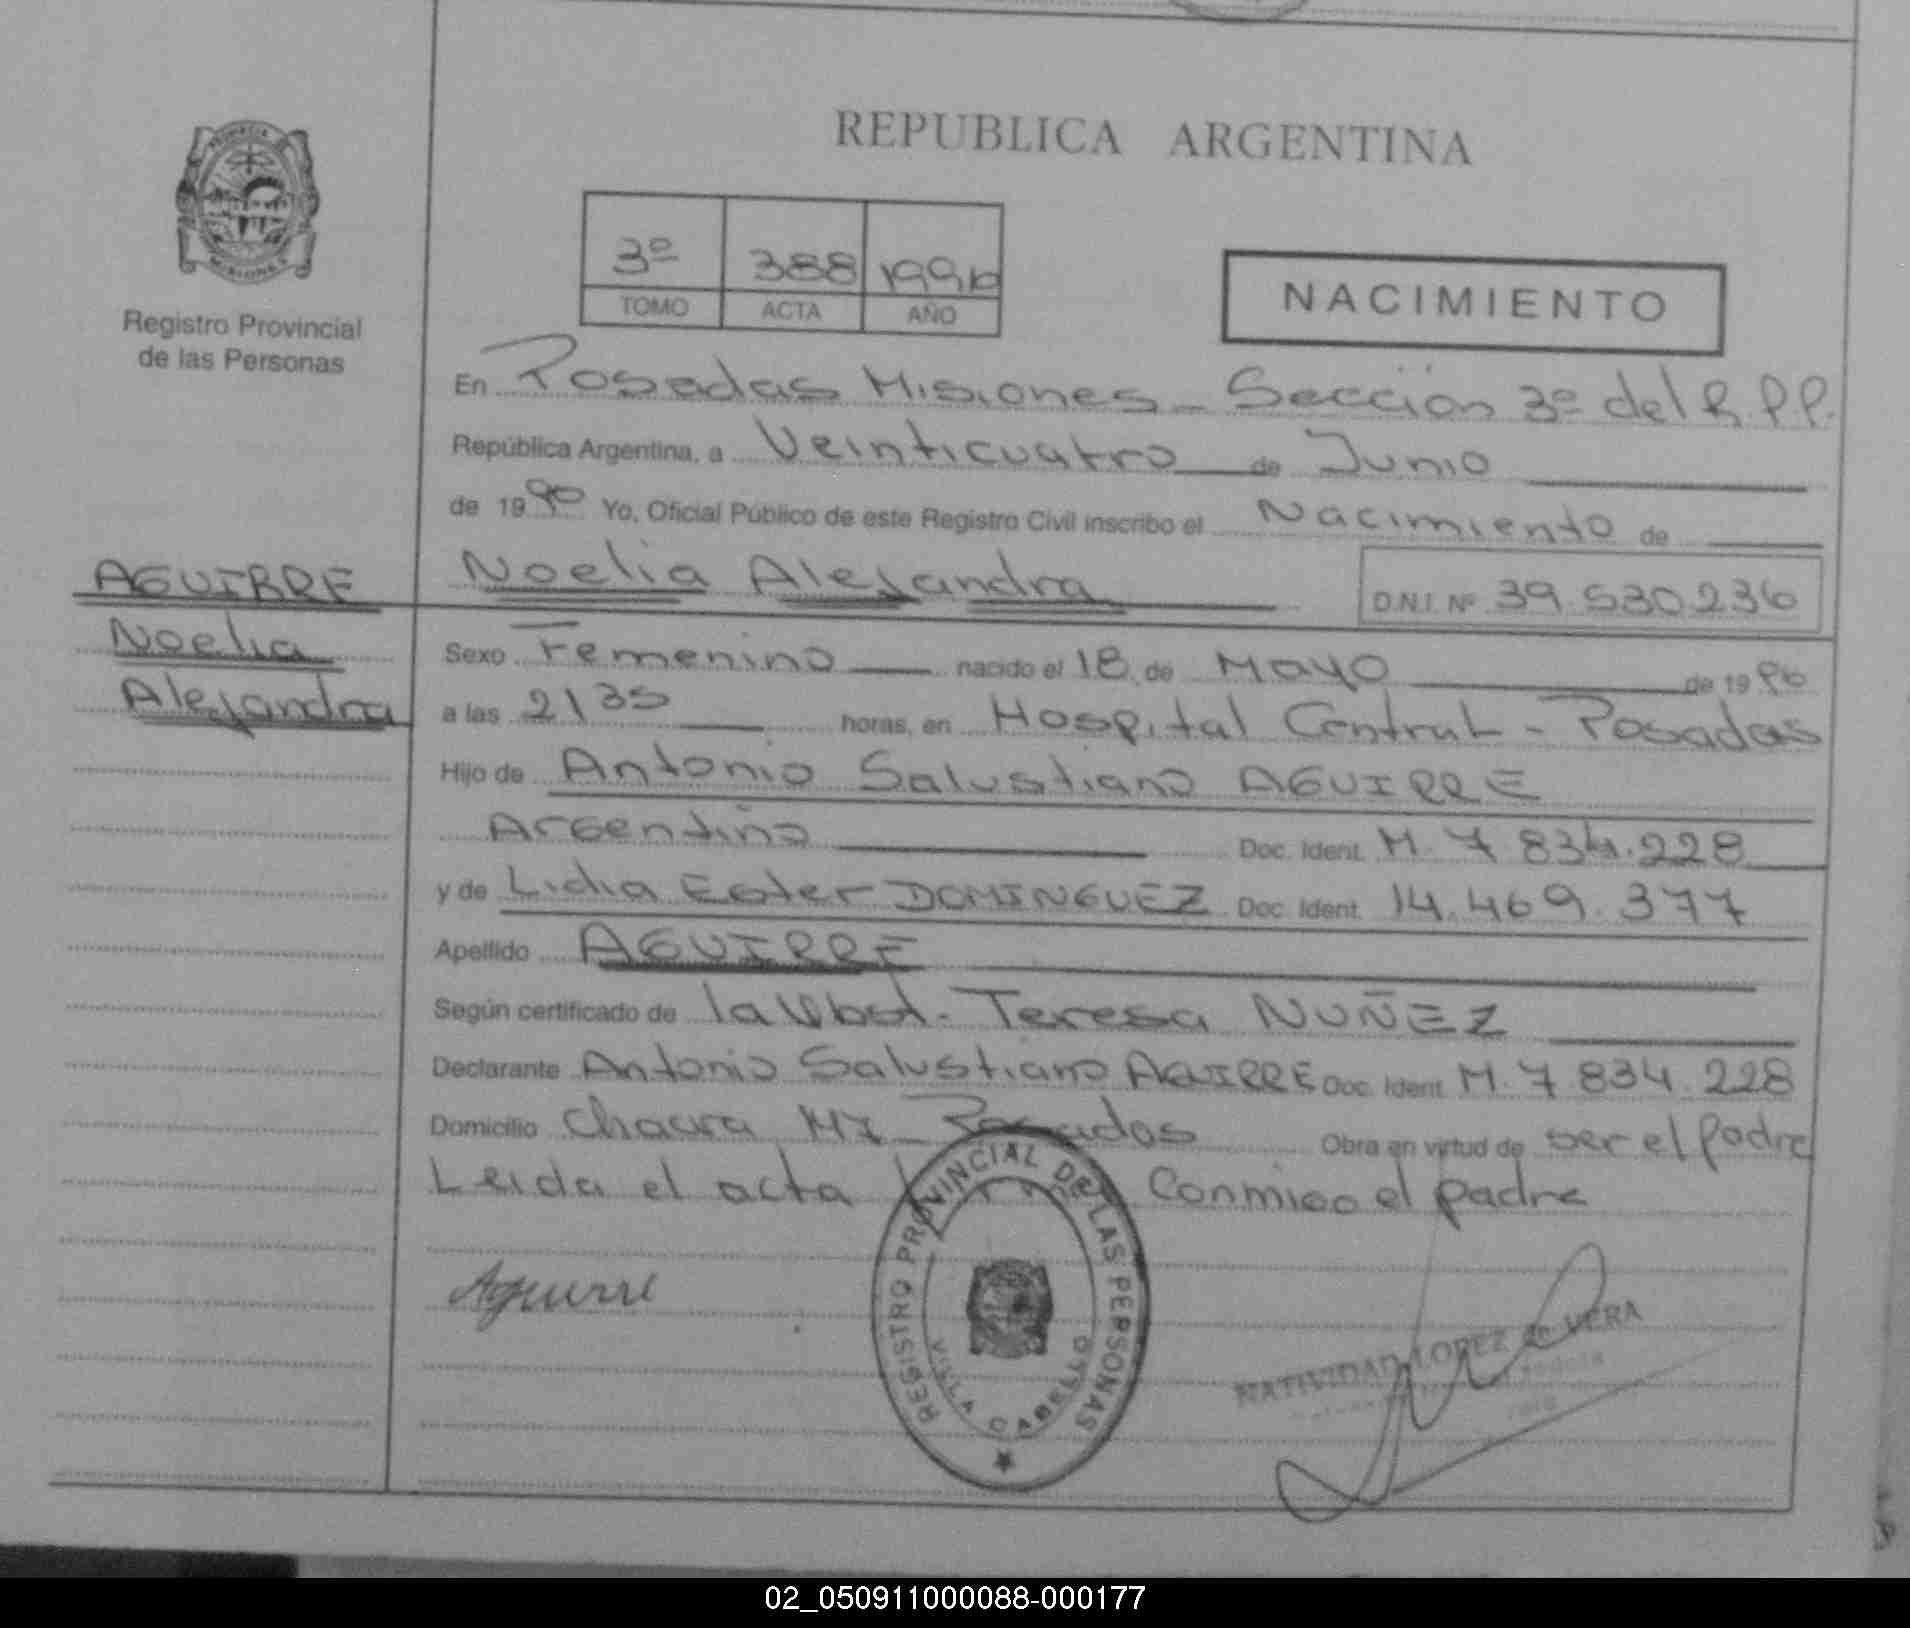 REPUBLICA ARGENTINA
PROVINCIA
MISIONES
Registro Provincial
de las Personas
3º 388 1996
TOMO ACTA AÑO
NACIMIENTO
En Posadas Misiones - Sección 3º del R.P.P.
República Argentina, a Veinticuatro de Junio
de 19 96 Yo, Oficial Público de este Registro Civil inscribo el Nacimiento de
AGUIRRE
Noelia
Alejandra
Noelia Alejandra
D.N.I. Nº 39.530.236
Sexo Femenino nacido el 18 de Mayo de 19 96
a las 21 35 horas, en Hospital Central - Posadas
Hijo de Antonio Salustiano AGUIRRE
Argentino Doc. Ident. M. 7 834.228
y de Lidia Ester DOMINGUEZ Doc. Ident. 14.469.377
Apellido AGUIRRE
Según certificado de la Teresa NUÑEZ
Declarante Antonio Salustiano AGUIRRE Doc. Ident. M. 7 834.228
Domicilio Posadas Obra en virtud de ser el padre
Leida el acta Conmigo el padre
Aguirre
REGISTRO PROVINCIAL DE LAS PERSONAS
VILLA CABELLO
NATIVIDAD LOPEZ de VERA
02_050911000088-000177